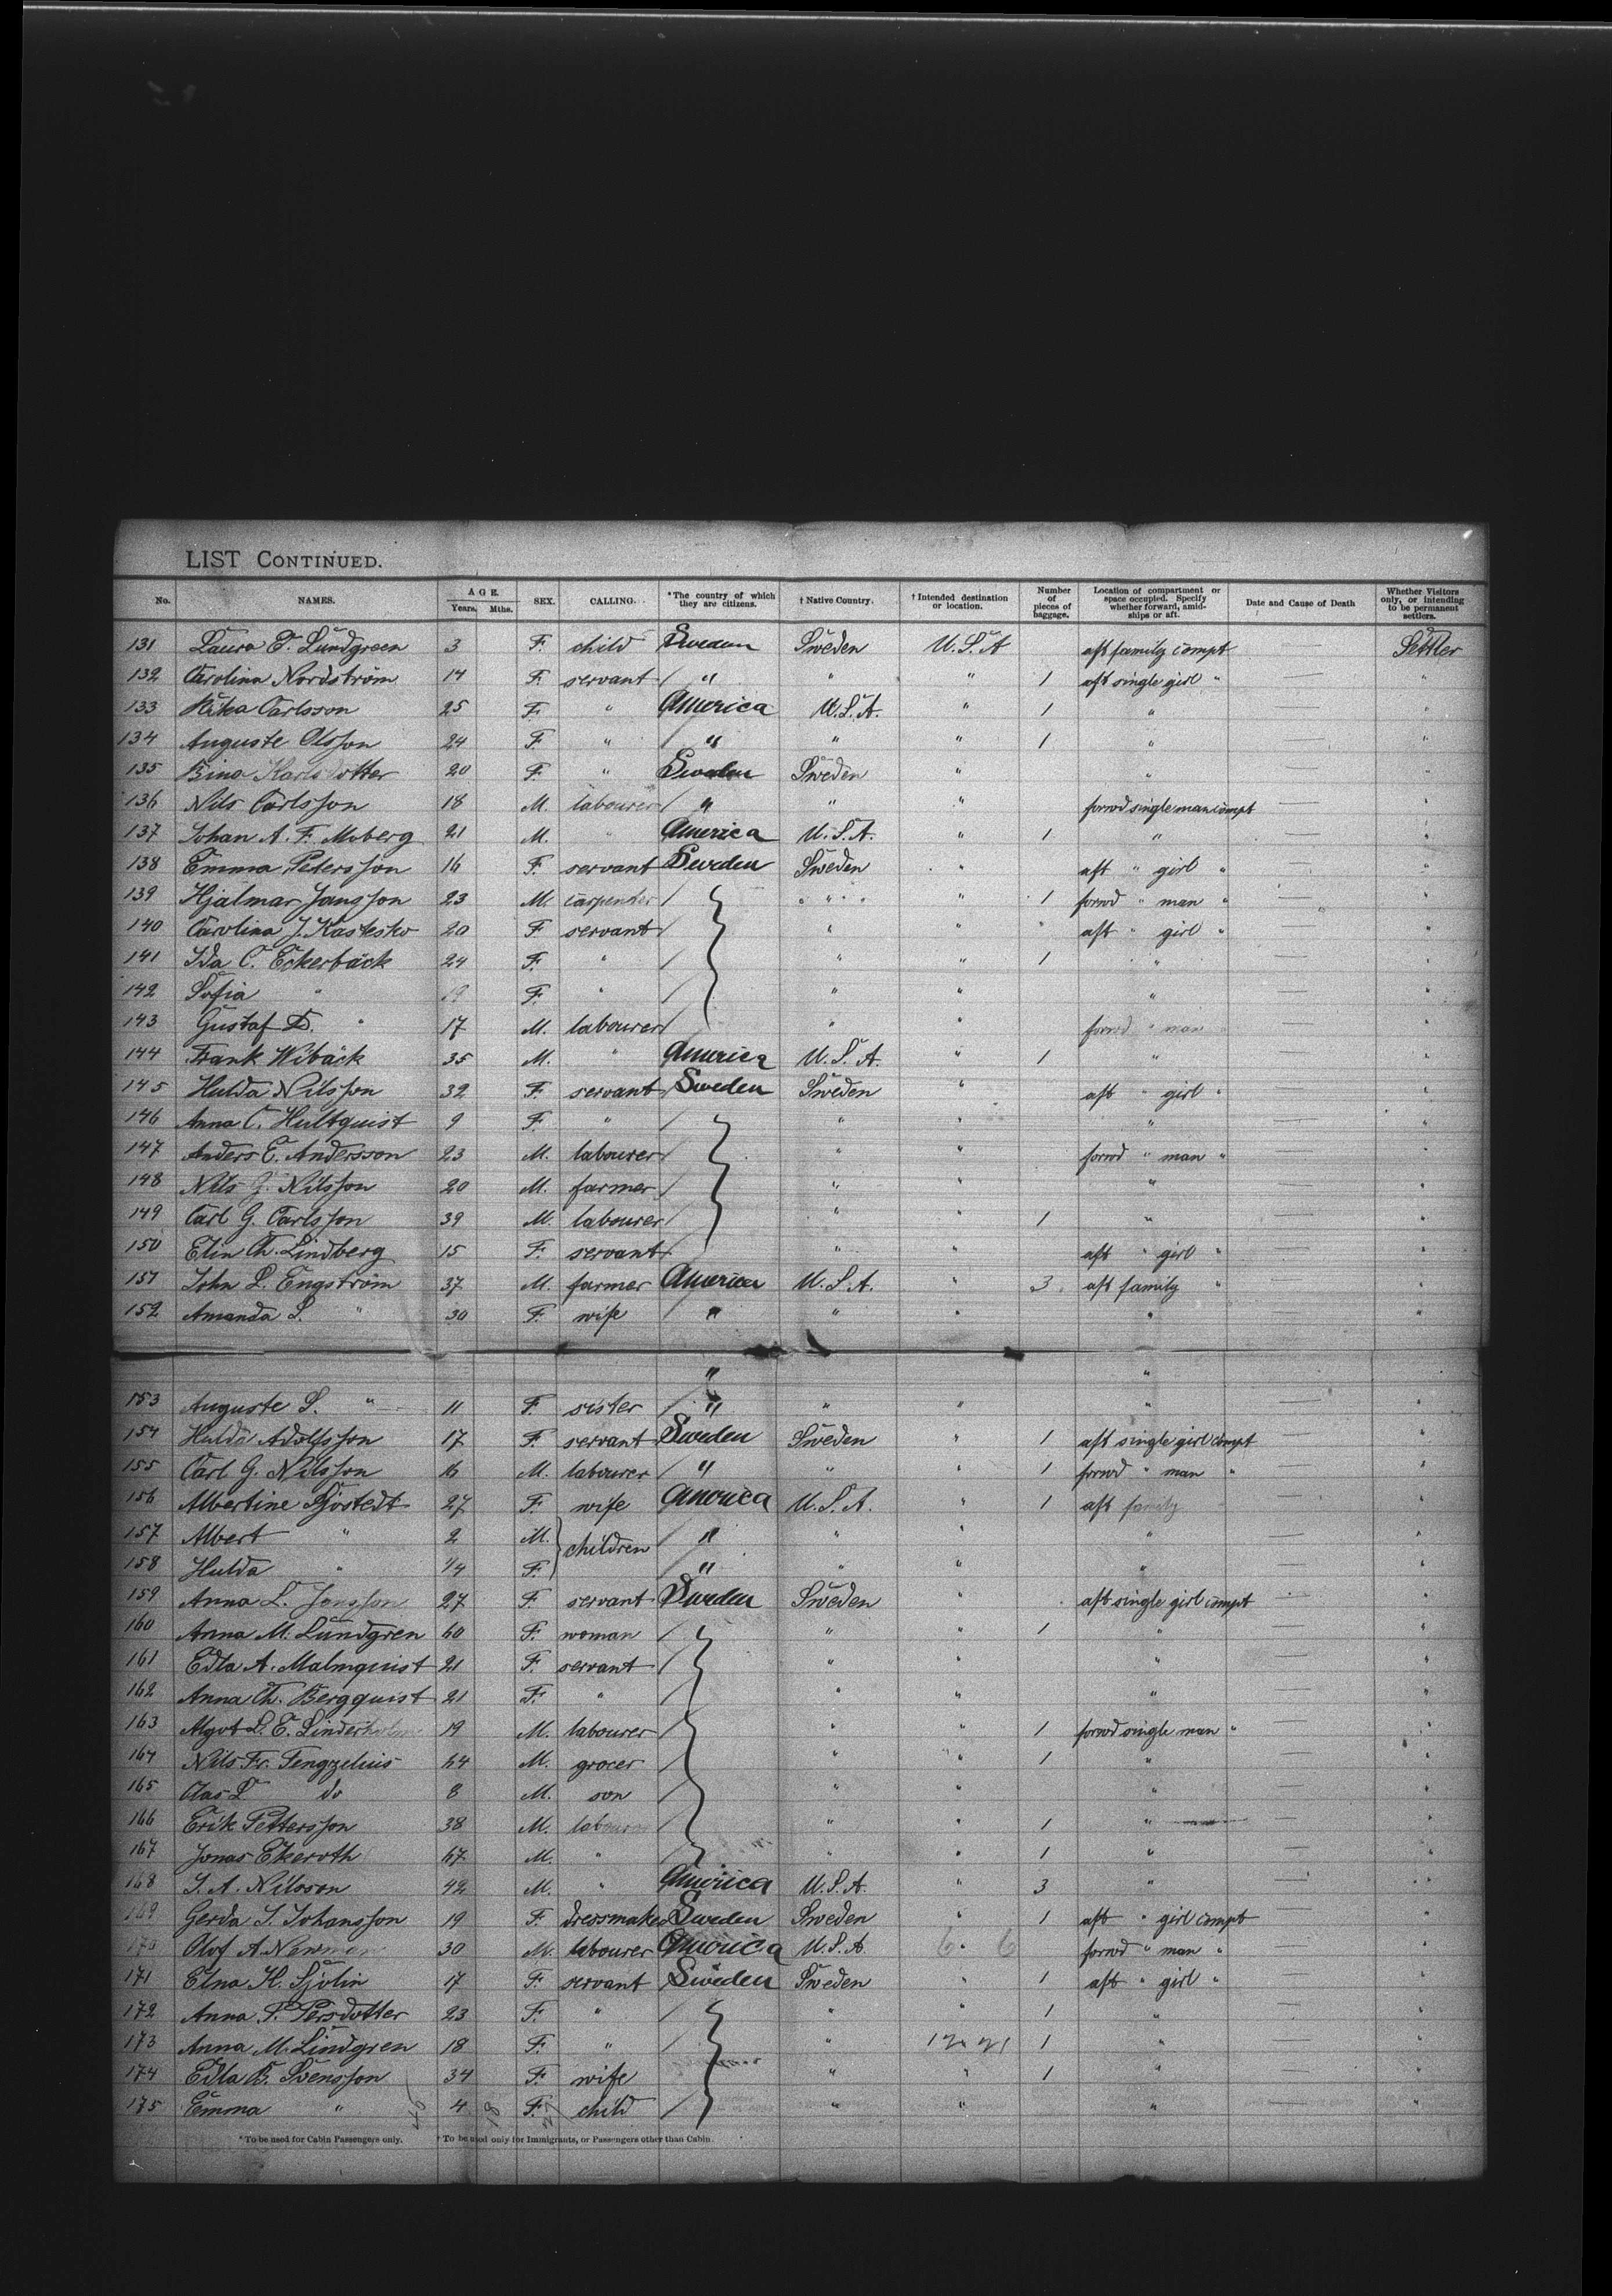 LIST CONTINUED.
No. NAMES. AGE. Years. Mths. SEX. CALLING. *The country of which they are citizens. † Native Country. † Intended destination or location. Number of pieces of baggage. Location of compartment or space occupied. Specify whether forward, amidships or aft. Date and Cause of Death Whether Visitors only, or intending to be permanent settlers.
131 Laura E. Lundgreen 3 F. child Sweden Sweden U.S.A aft family compt — Settler
132 Carolina Nordström 14 F. servant " " " 1 aft single girl " — "
133 Carlsson 25 F. " America U.S.A. " 1 " — "
134 Auguste Olsson 24 F. " " " " 1 " — "
135 Bina Karlsdotter 20 F. " Sweden Sweden " " — "
136 Nils Carlsson 18 M. labourer " " " forwd single man compt — "
137 Johan A. F. Moberg 21 M. " America U.S.A. " 1 " — "
138 Emma Petersson 16 F. servant Sweden Sweden " aft " girl " — "
139 Hjalmar Jansson 23 M. carpenter " " 1 forwd " man " — "
140 Carolina J. 20 F servant " " " aft " girl " — "
141 Ida C. Eckerbäck 24 F. " " " 1 " — "
142 Sofia " 19 F. " " " " — "
143 Gustaf D. " 17 M. labourer " " forwd " man — "
144 Frank Wibäck 35 M. " America U.S.A. " 1 " — "
145 Hulda Nilsson 32 F. servant Sweden Sweden " aft " girl " — "
146 Anna C. Hultquist 9 F. " " " " — "
147 Anders E. Andersson 23 M. labourer " " forwd " man " — "
148 Nils G. Nilsson 20 M. farmer " " " — "
149 Carl G. Carlsson 39 M. labourer " " 1 " — "
150 Elin Ch. Lindberg 15 F. servant " " aft " girl " — "
151 John L. Engström 37 M. farmer America U.S.A. " 3 aft family " — "
152 Amanda L. " 30 F. wife " " " " — "
" "
153 Auguste S. " 11 F. sister " " " " — "
154 Hulda Adolfsson 17 F. servant Sweden Sweden " 1 aft single girl compt — "
155 Carl G. Nilsson 16 M. labourer " " " 1 forwd " man " — "
156 Albertine 27 F. wife America U.S.A. " 1 aft family — "
157 Albert " 2 M. children " " " " — "
158 Hulda " 1/4 F. " " " " — "
159 Anna L. Jonsson 27 F. servant Sweden Sweden " aft single girl compt — "
160 Anna M. Lundgren 60 F. woman " " 1 " — "
161 Edla A. Malmquist 21 F. servant " " " — "
162 Anna Ch. Bergquist 21 F. " " " " — "
163 Algot L. E. Linderholm 19 M. labourer " " 1 forwd single man " — "
164 Nils Fr. Tengzelius 64 M. grocer " " 1 " — "
165 Clas L do 8 M. son " " " — "
166 Erik Pettersson 38 M. labourer " " 1 " — "
167 Jonas Ekeroth 67 M. " " " 1 " — "
168 J. A. Nilsson 42 M. " America U.S.A. " 3 " — "
169 Gerda S. Johansson 19 F. dressmaker Sweden Sweden " 1 aft " girl compt — "
170 Olof A. Newman 30 M. labourer America U.S.A. 6 " 6 forwd " man " — "
171 Elna H. Sjölin 17 F. servant Sweden Sweden " 1 aft " girl " — "
172 Anna P. Persdotter 23 F. " " " 1 " — "
173 Anna M. Lindgren 18 F. " " 1 " — "
174 Edla B. Svensson 34 F. wife " " 1 " — "
175 Emma " 4 F. child " " " — "
*To be used for Cabin Passengers only. † To be used only for Immigrants, or Passengers other than Cabin.